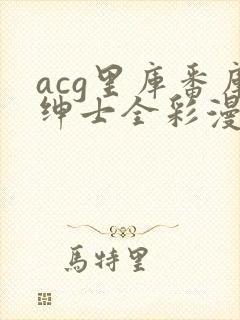 acg里库番库
绅士全彩漫
馬特里